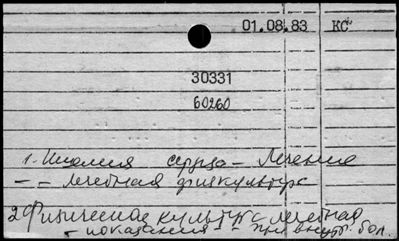 01.08.83 КС
30331
60260
1. Ишемия сердца – Лечение
– – лечебная физкультура
2 Физическая культура лечебная
– показания – при внутр. бол.